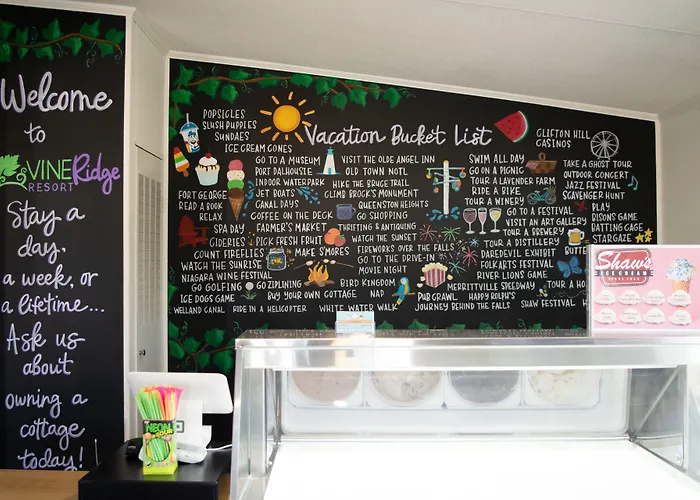 Welcome
to
VINE Ridge
RESORT
Stay a
day,
a week, or
a lifetime...
Ask us
about
owning a
cottage
today!
Vacation Bucket List
POPSICLES
SLUSH PUPPIES
SUNDAES
ICE CREAM CONES
GO TO A MUSEUM
PORT DALHOUSIE
INDOOR WATERPARK
JET BOATS
CANAL DAYS
COFFEE ON THE DECK
FORT GEORGE
READ A BOOK
RELAX
SPA DAY
FARMER'S MARKET
CIDERIES
PICK FRESH FRUIT
COUNT FIREFLIES
WATCH THE SUNRISE
NIAGARA WINE FESTIVAL
ICE DOGS GAME
GO GOLFING
GO ZIPLINING
MAKE S'MORES
BUY YOUR OWN COTTAGE
NAP
WELLAND CANAL
RIDE IN A HELICOPTER
WHITE WATER WALK
VISIT THE OLDE ANGEL INN
OLD TOWN NOTL
HIKE THE BRUCE TRAIL
CLIMB BROCK'S MONUMENT
QUEENSTON HEIGHTS
GO SHOPPING
THRIFTING & ANTIQUING
WATCH THE SUNSET
FIREWORKS OVER THE FALLS
GO TO THE DRIVE-IN
MOVIE NIGHT
BIRD KINGDOM
PUB CRAWL
HAPPY ROLPH'S
MERRITTVILLE SPEEDWAY
JOURNEY BEHIND THE FALLS
SWIM ALL DAY
GO ON A PICNIC
TOUR A LAVENDER FARM
RIDE A BIKE
TOUR A WINERY
GO TO A FESTIVAL
VISIT AN ART GALLERY
TOUR A BREWERY
TOUR A DISTILLERY
DAREDEVIL EXHIBIT
FOLKARTS FESTIVAL
RIVER LIONS GAME
TOUR A HO
SHAW FESTIVAL
CLIFTON HILL
CASINOS
TAKE A GHOST TOUR
OUTDOOR CONCERT
JAZZ FESTIVAL
SCAVENGER HUNT
PLAY
BISONS GAME
BATTING CAGE
STARGAZE
BUTTER
Shaw's
ICE CREAM
NEON
SOUR